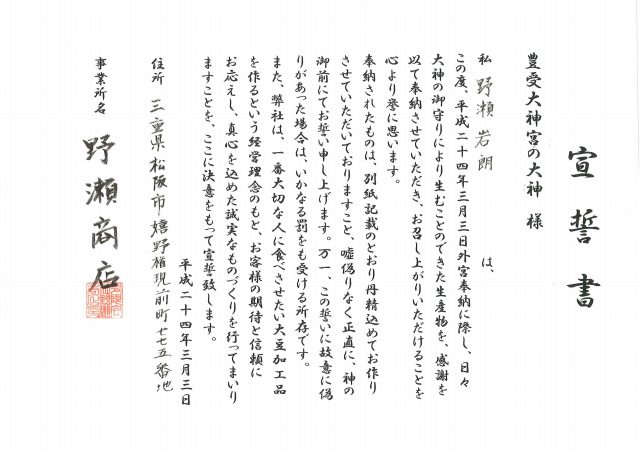 宣誓書
豊受大神宮の大神 様
私 野瀬岩朗 は、
この度、平成二十四年三月三日外宮奉納に際し、日々
大神の御守りにより生むことのできた生産物を、感謝を
以て奉納させていただき、お召し上がりいただけることを
心より誉に思います。
奉納されたものは、別紙記載のとおり丹精込めてお作り
させていただいておりますこと、嘘偽りなく正直に、神の
御前にてお誓い申し上げます。万一、この誓いに故意に偽
りがあった場合は、いかなる罰をも受ける所存です。
また、弊社は、一番大切な人に食べさせたい大豆加工品
を作るという経営理念のもと、お客様の期待と信頼に
お応えし、真心を込めた誠実なものづくりを行ってまいり
ますことを、ここに決意をもって宣誓致します。
平成二十四年三月三日
住所 三重県松阪市嬉野権現前町七七五番地
事業所名 野瀬商店